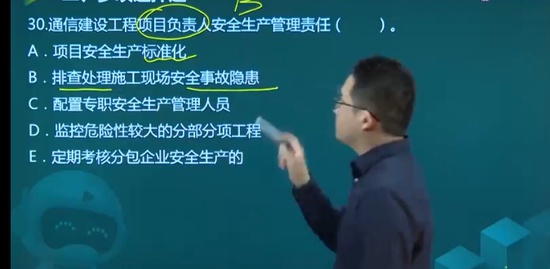 30.通信建设工程项目负责人安全生产管理责任（  ）。
A．项目安全生产标准化
B．排查处理施工现场安全事故隐患
C．配置专职安全生产管理人员
D．监控危险性较大的分部分项工程
E．定期考核分包企业安全生产的